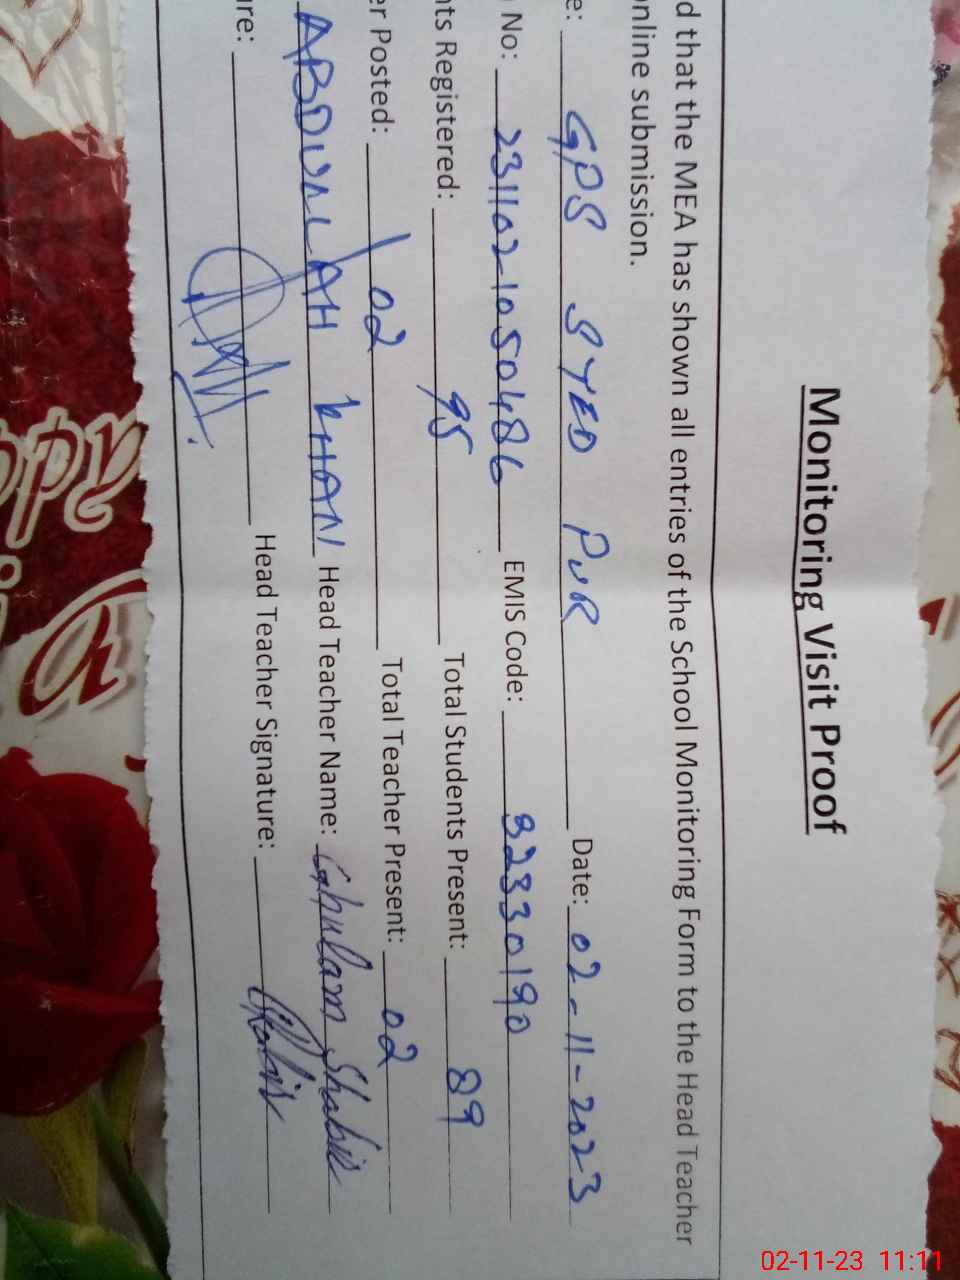 Monitoring Visit Proof
d that the MEA has shown all entries of the School Monitoring Form to the Head Teacher
nline submission.
e: GPS SYED PUR Date: 02-11-2023
No: 2311021050486 EMIS Code: 32330190
nts Registered: 95 Total Students Present: 89
er Posted: 02 Total Teacher Present: 02
ABDULLAH KHAN Head Teacher Name: Ghulam Shabir
re: Head Teacher Signature:
02-11-23 11:11